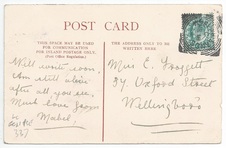 POST CARD
THIS SPACE MAY BE USED
FOR COMMUNICATION
FOR INLAND POSTAGE ONLY.
(Post Office Regulation.)
THE ADDRESS ONLY TO BE
WRITTEN HERE.
Will write soon.
Am still alive
after all you see.
Much love from
Mabel.
Miss E. Froggett
37 Oxford Street
Wellingboro'